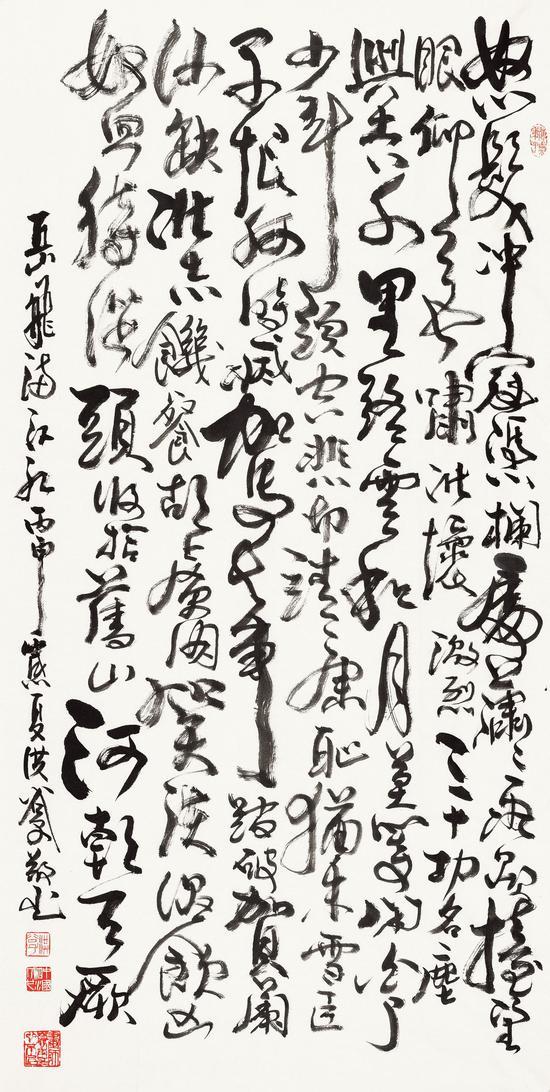 怒髮冲冠憑欄處瀟瀟雨歇擡望
眼仰天長嘯壯懷激烈三十功名塵
與土八千里路雲和月莫等閒白了
少年頭空悲切靖康恥猶未雪臣
子恨何時滅駕長車踏破賀蘭
山缺壯志饑餐胡虜肉笑談渴飲匈
奴血待從頭收拾舊山河朝天闕
岳飛滿江紅丙申歲夏洪敬書